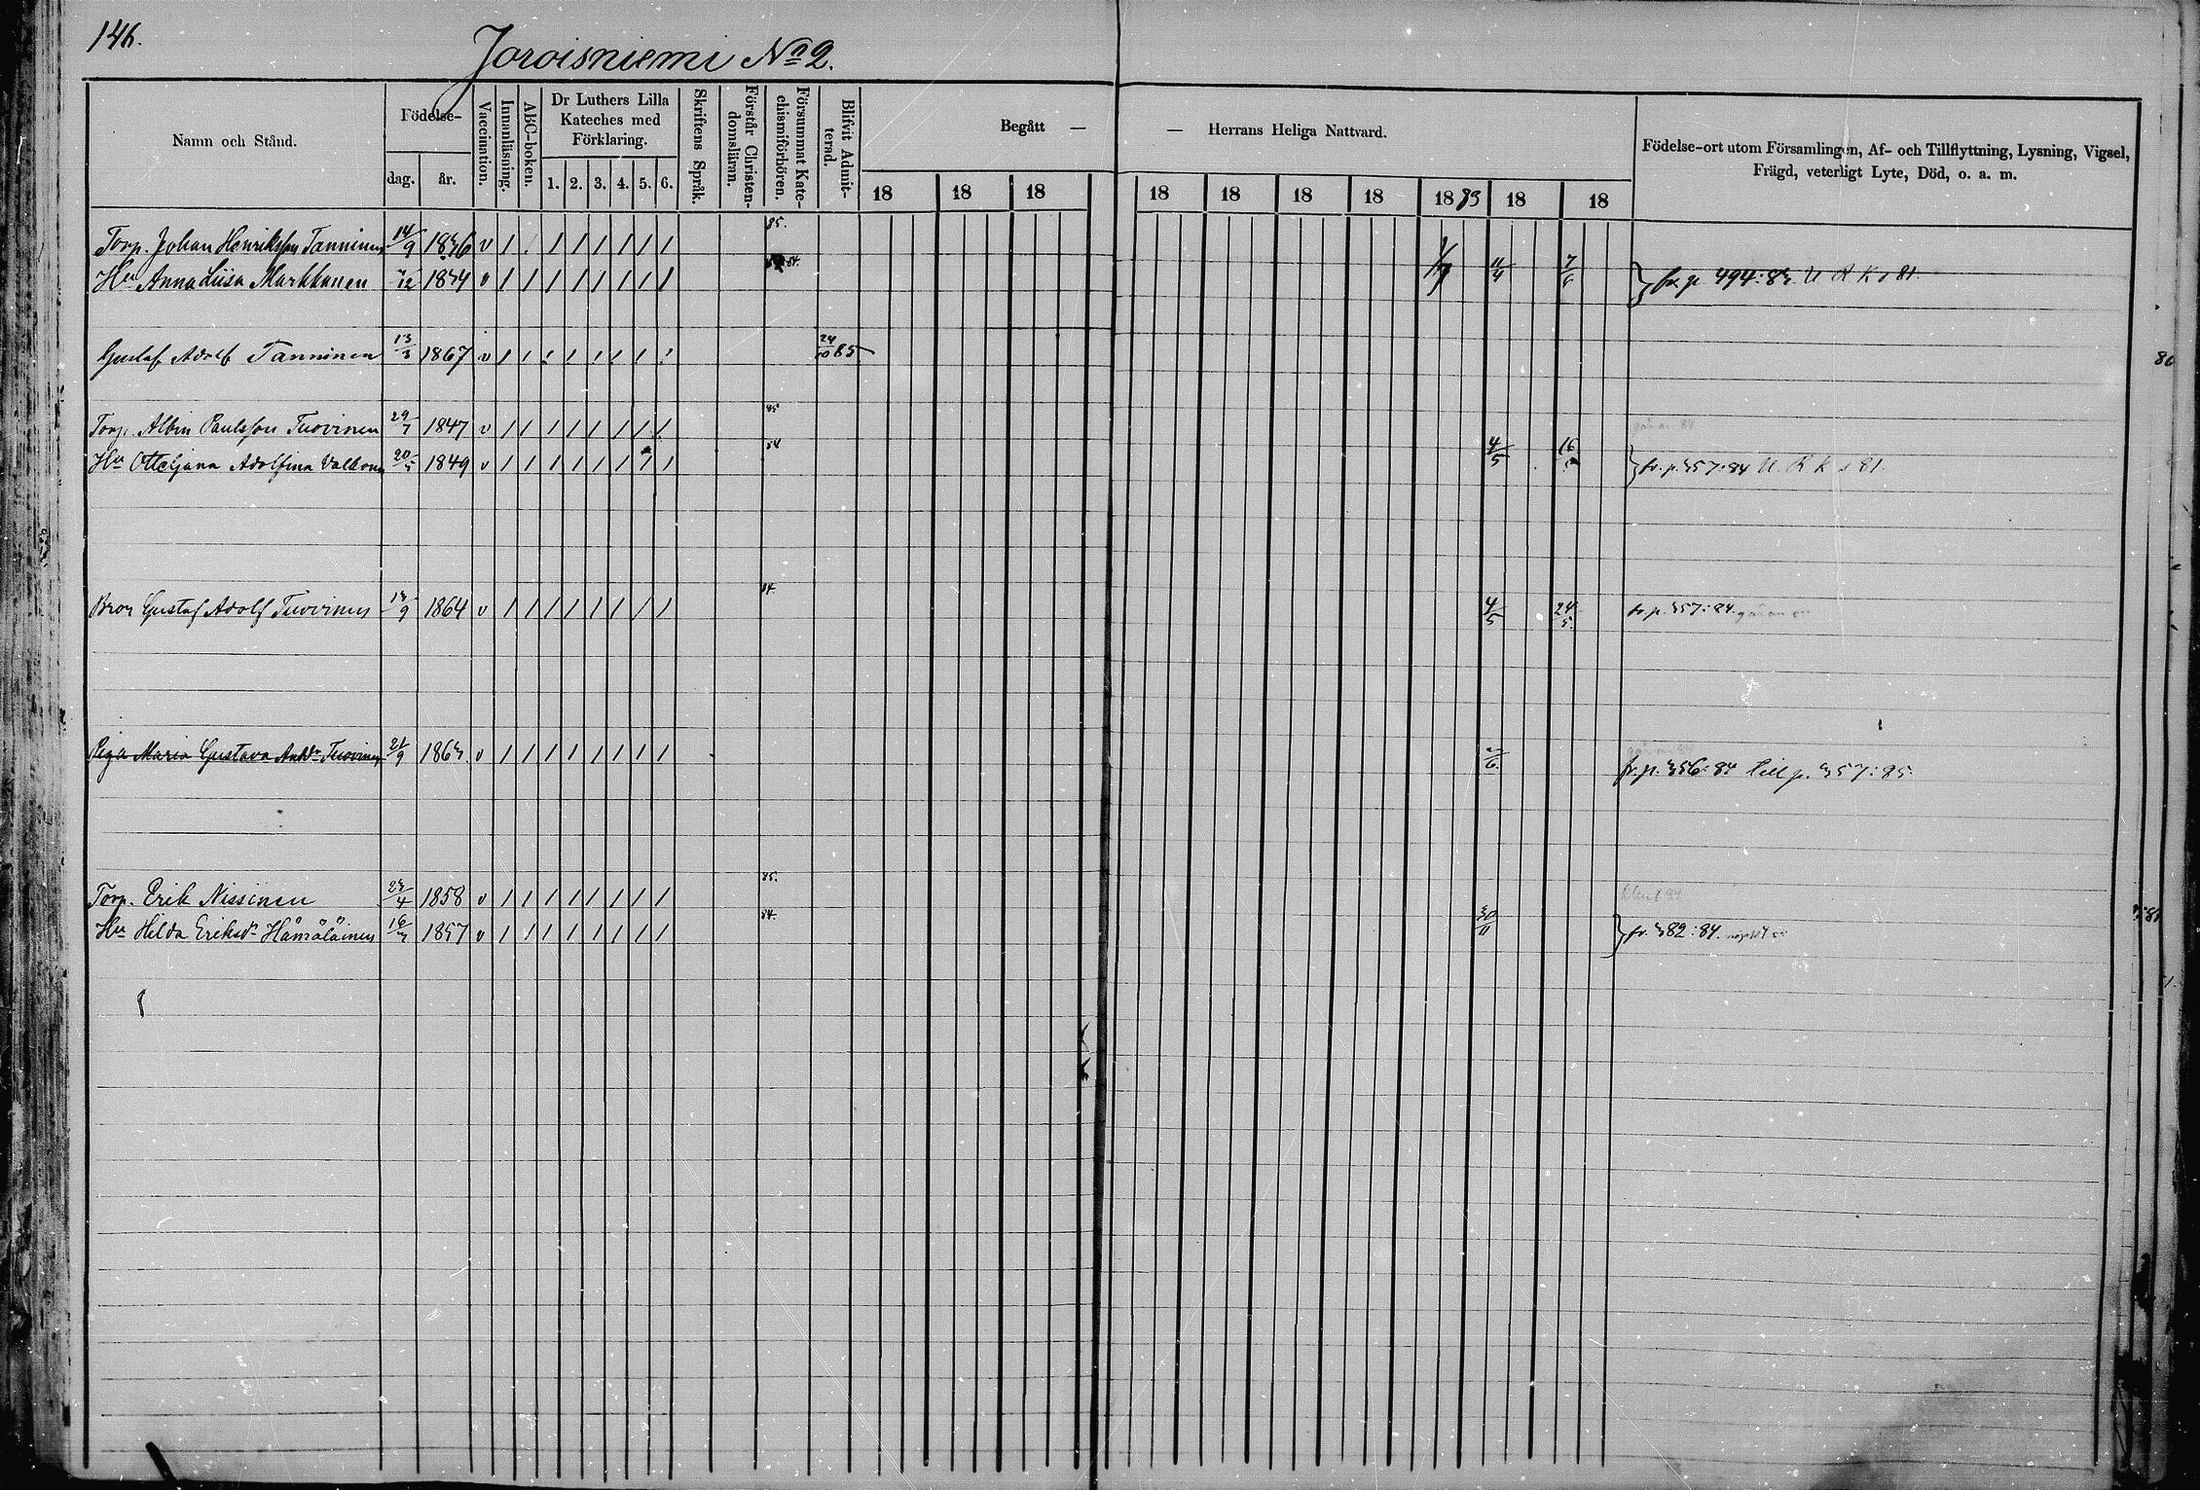 146.
Joroisniemi No 2.
Namn och Stånd.
Födelse-
dag.
år.
Vaccination.
Innanläsning.
ABC-boken.
Dr Luthers Lilla
Kateches med
Förklaring.
1. 2. 3. 4. 5. 6.
Skriftens Språk.
Förstår Christen-
domsläran.
Försummat Kate-
chismiförhören.
Blifvit Admit-
terad.
Begått — — Herrans Heliga Nattvard.
18 18 18 18 18 18 18 1883 18 18
Födelse-ort utom Församlingen, Af- och Tillflyttning, Lysning, Vigsel,
Frägd, veterligt Lyte, Död, o. a. m.
Torp. Johan Henriksson Tanninen 14/9 1836 v / / / / / / / / 85.
Hu Anna Liisa Markkanen /12 1834 v / / / / / / / / 84. 11/4 7/6 fr. p. 494: 83. U R K s 81
Gustaf Adolf Tanninen 13/3 1867 v / / / / / / / / 24/10 85
86
Torp. Albin Paulsson Tuovinen 29/7 1847 v / / / / / / / / 85
Hu Otteljana Adolfina Valkonen 20/5 1849 v / / / / / / / / 84 4/5 16/5 fr. p. 357: 84 U. R K s 81.
Bror Gustaf Adolf Tuovinen 13/9 1864 v / / / / / / / / 84 4/5 24/5. fr. p. 357: 84.
Piga Maria Gustava Andr Tuovinen 21/9 1863. v / / / / / / / / /6. fr. p. 356: 84 till p. 357: 85.
Torp. Erik Nissinen 23/4 1858 v / / / / / / / / 85.
Hu Hilda Eriksdr Hämäläinen 16/3 1857 v / / / / / / / / 84. 30/11 fr. 382: 84.